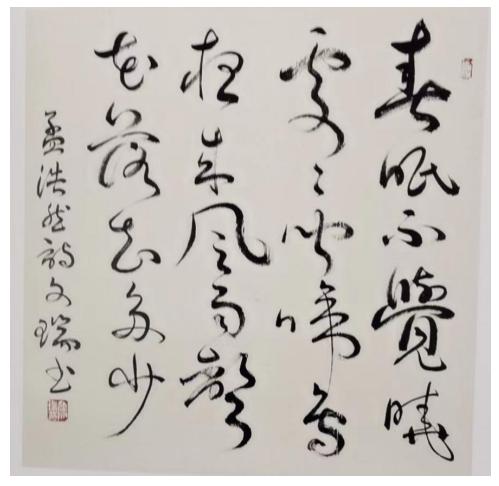 春眠不覺曉
處々聞啼鳥
夜来風雨聲
花落知多少
孟浩然詩文瑞书